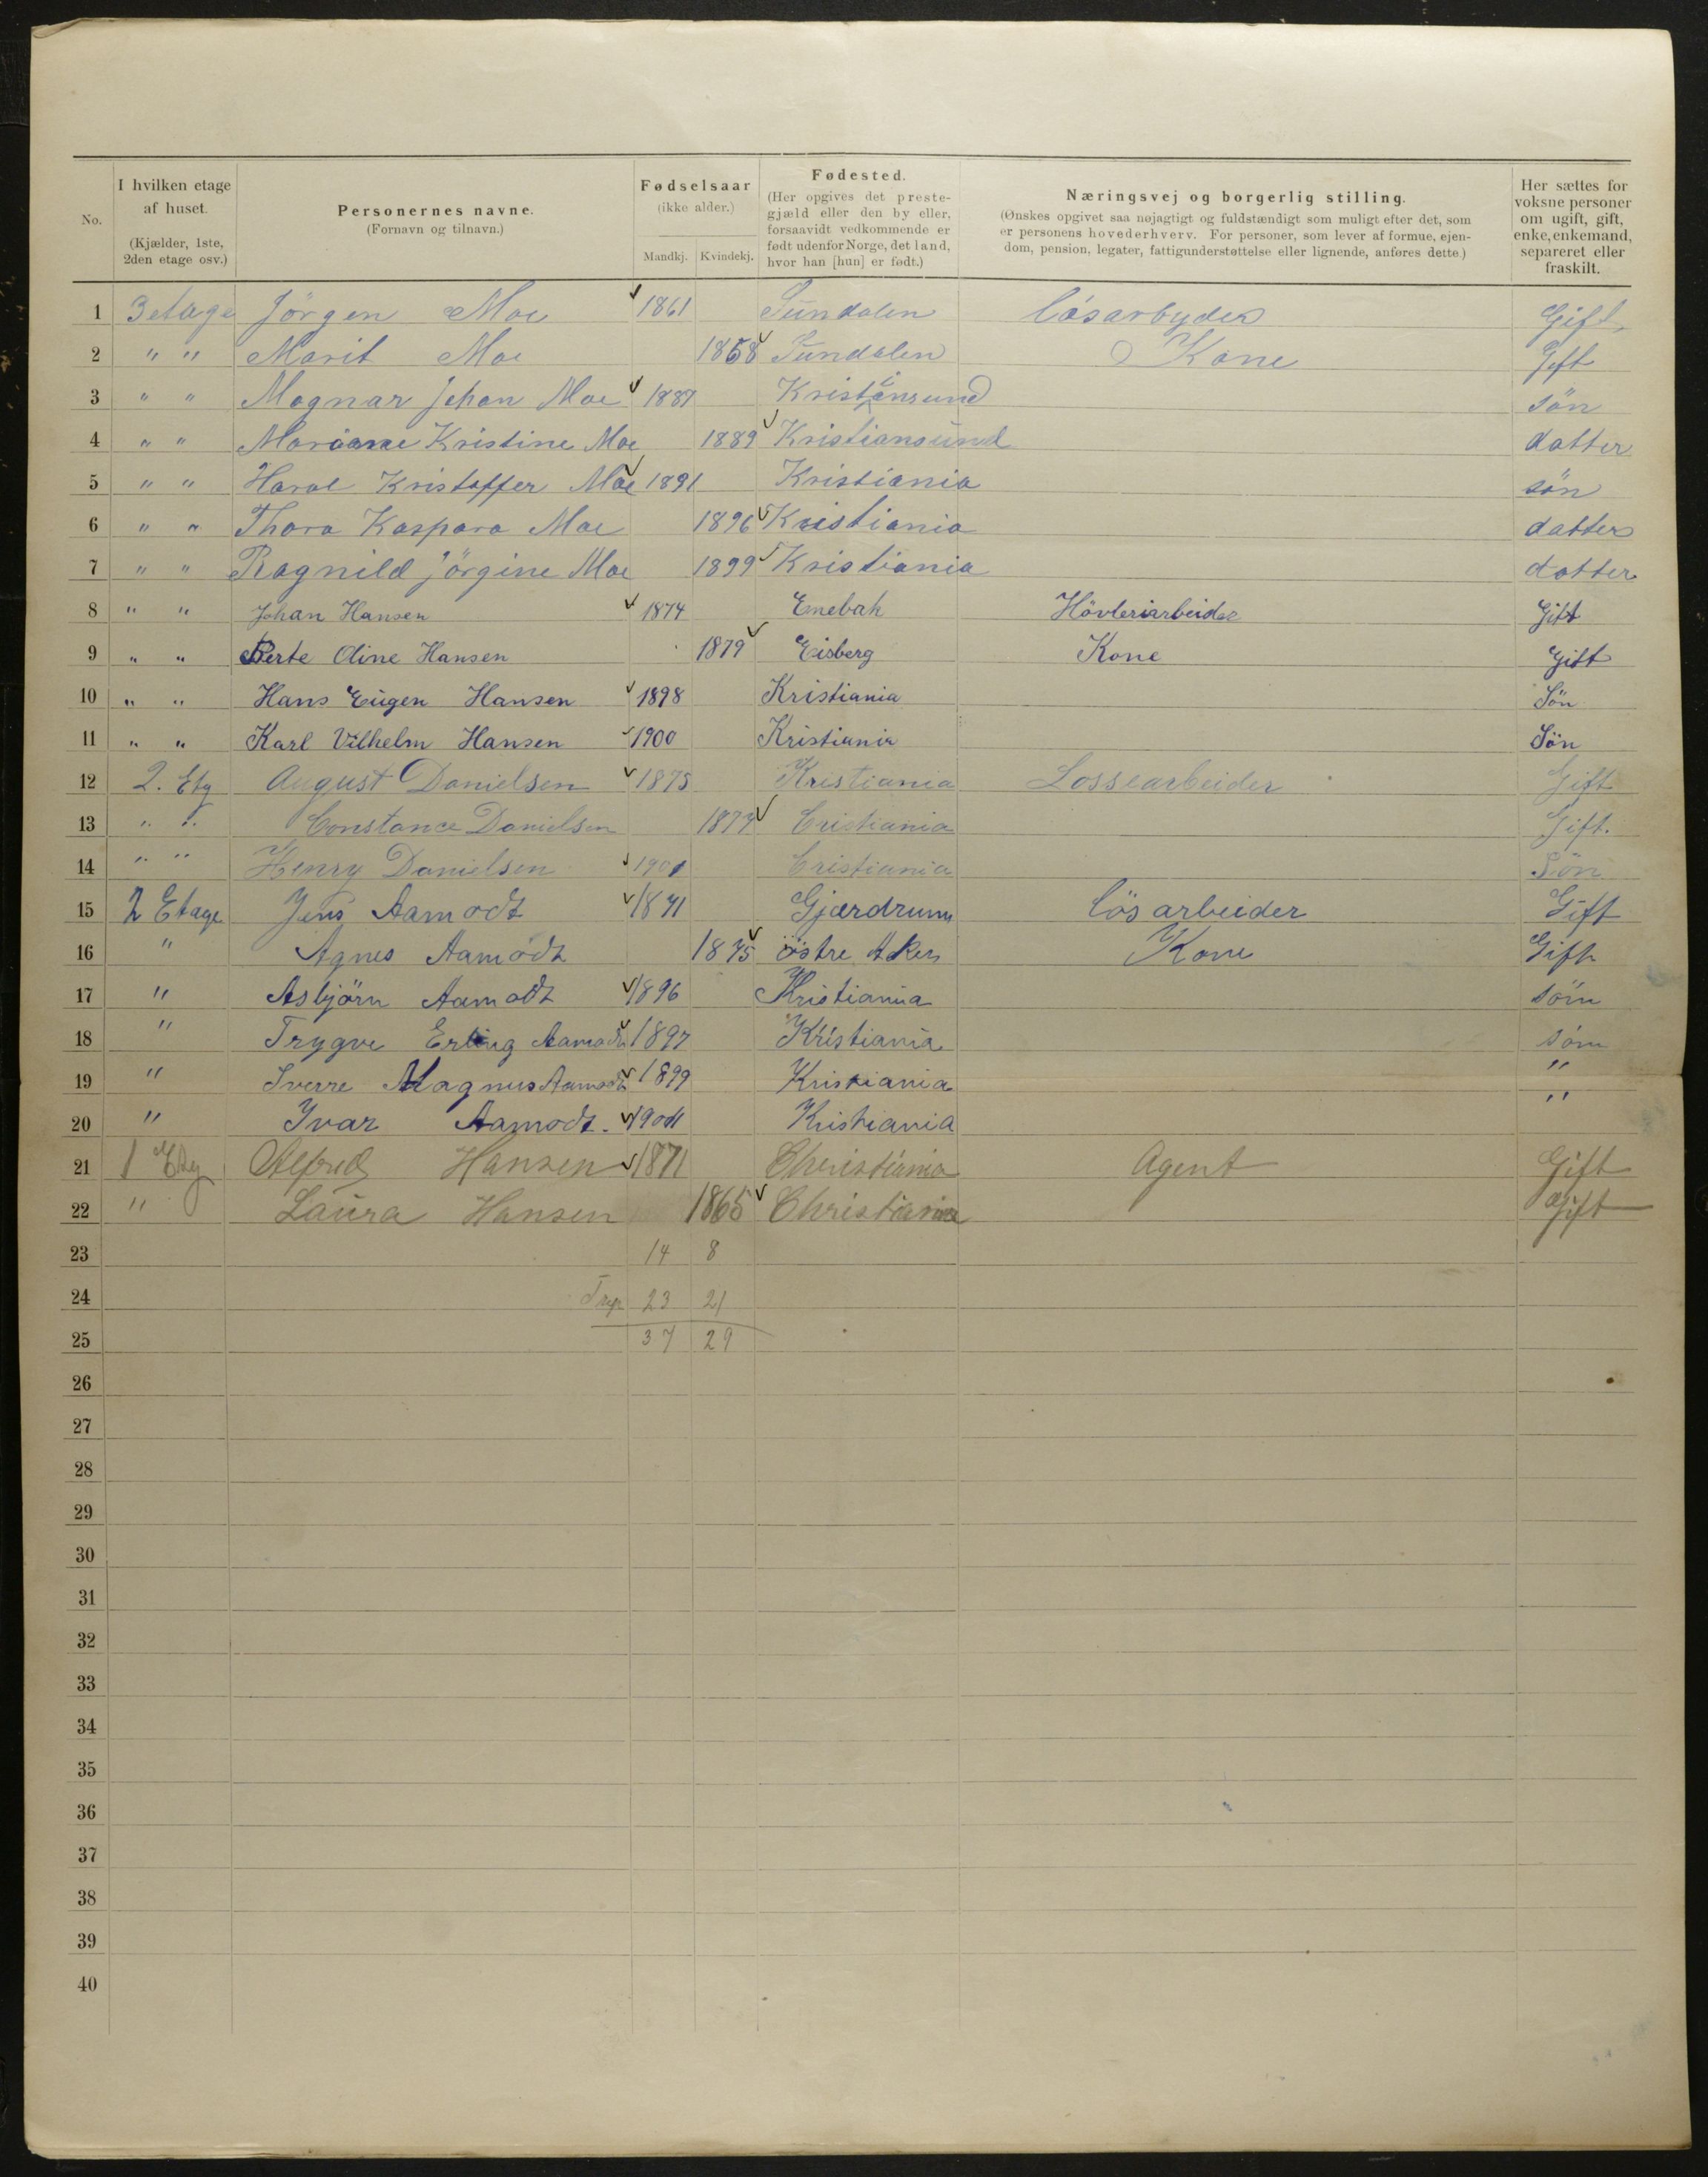 No.
I hvilken etage
af huset.
(Kjælder, 1ste,
2den etage osv.)
Personernes navne.
(Fornavn og tilnavn.)
Fødselsaar
(ikke alder.)
Mandkj. Kvindekj.
Fødested.
(Her opgives det preste-
gjæld eller den by eller,
forsaavidt vedkommende er
født udenfor Norge, det land,
hvor han [hun] er født.)
Næringsvej og borgerlig stilling.
(Ønskes opgivet saa nøjagtigt og fuldstændigt som muligt efter det, som
er personens hovederhverv. For personer, som lever af formue, ejen-
dom, pension, legater, fattigunderstøttelse eller lignende, anføres dette.)
Her sættes for
voksne personer
om ugift, gift,
enke, enkemand,
separeret eller
fraskilt.
1 3 etage Jörgen Moe 1861 Sundalen lösarbyder Gift
2 " " Marit Moe 1858 Sundalen Kone Gift
3 " " Magnar Johan Moe 1887 Kristiansund sön
4 " " Mariane Kristine Moe 1889 Kristiansund datter
5 " " Haral Kristoffer Moe 1891 Kristiania sön
6 " " Thora Kaspara Moe 1896 Kristiania datter
7 " " Ragnild Jörgine Moe 1899 Kristiania datter
8 " " Johan Hansen 1874 Enebak Hövleriarbeider Gift
9 " " Berte Oline Hansen 1879 Eisberg Kone Gift
10 " " Hans Eugen Hansen 1898 Kristiania Sön
11 " " Karl Vilhelm Hansen 1900 Kristiania Sön
12 2. Etg August Danielsen 1875 Kristiania Lossearbeider Gift
13 " " Constance Danielsen 1874 Cristiania Gift.
14 " " Henry Danielsen 1901 Cristiania Sön
15 2 Etage Jens Aamodt 1871 Gjærdrum lösarbeider Gift
16 " Agnes Aamodt 1875 östre Aker Kone Gift
17 " Asbjörn Aamodt 1896 Kristiania söm
18 " Trygve Erling Aamodt 1897 Kristiania söm
19 " Sverre Magnus Aamodt 1899 Kristiania "
20 " Yvar Aamodt. 1901 Kristiania "
21 1 Etg Alfred Hansen 1871 Christiania Agent Gift
22 " Laura Hansen 1865 Christiania Gift
23 14 8
24 23 21
25 37 29
26
27
28
29
30
31
32
33
34
35
36
37
38
39
40